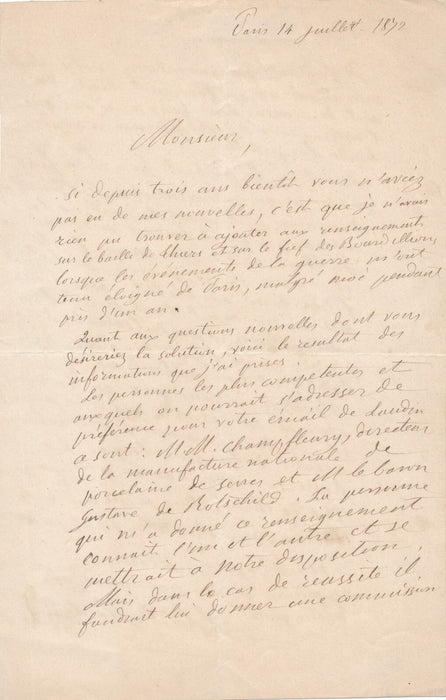 Paris 14 juillet 1872
Monsieur,
Si depuis trois ans bientôt vous n'aviez
pas eu de mes nouvelles, c'est que je n'avais
rien pu trouver à ajouter aux renseignements
sur le bailli de et sur le fief des
lorsque les événements de la guerre m'ont
tenu éloigné de Paris, malgré moi pendant
près d'un an.
Quant aux questions nouvelles dont vous
désireriez la solution, voici le resultat des
informations que j'ai prises.
Les personnes les plus competentes et
auxquels on pourrait s'adresser de
préférence pour votre émail de Laudin
sont : MM. Champfleury, directeur
de la manufacture nationale de
porcelaine de sevres et M le baron
Gustave de Rotschild. La personne
qui m'a donné ce renseignement
connait l'un et l'autre et se
mettrait à notre disposition.
Mais dans le cas de reussite il
faudrait lui donner une commission